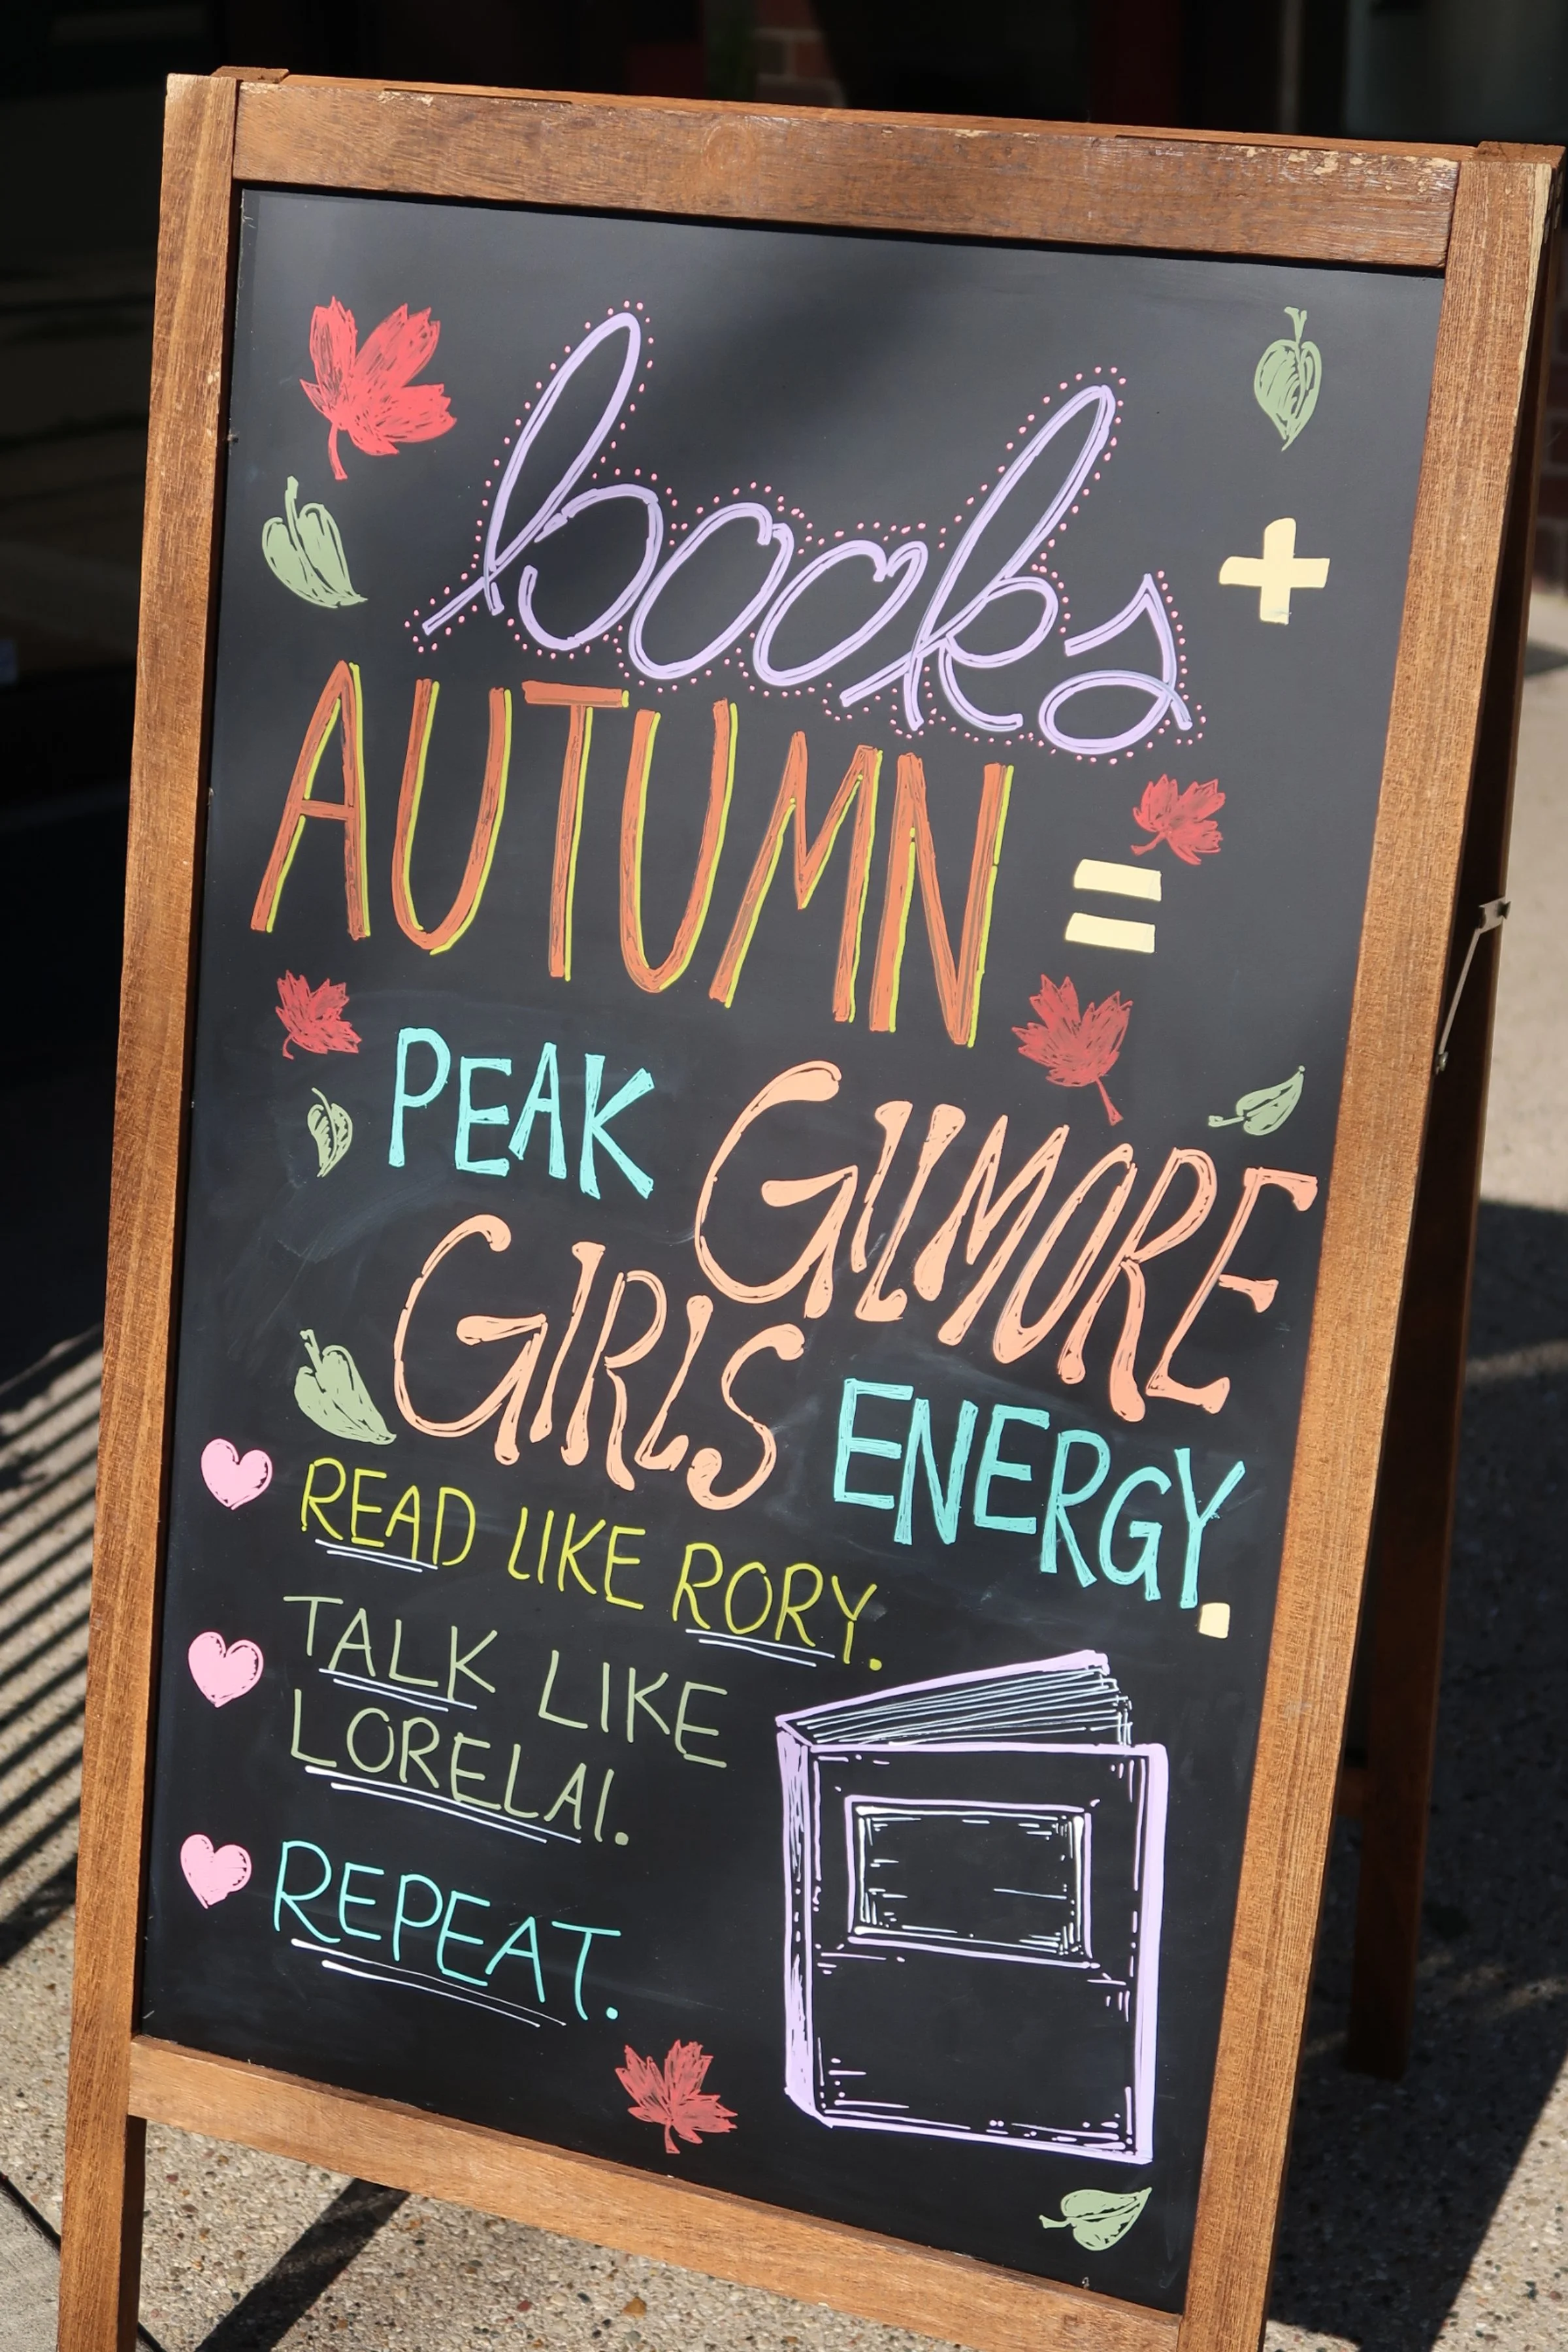 books +
AUTUMN =
PEAK GILMORE
GIRLS ENERGY.
READ LIKE RORY.
TALK LIKE
LORELAI.
REPEAT.